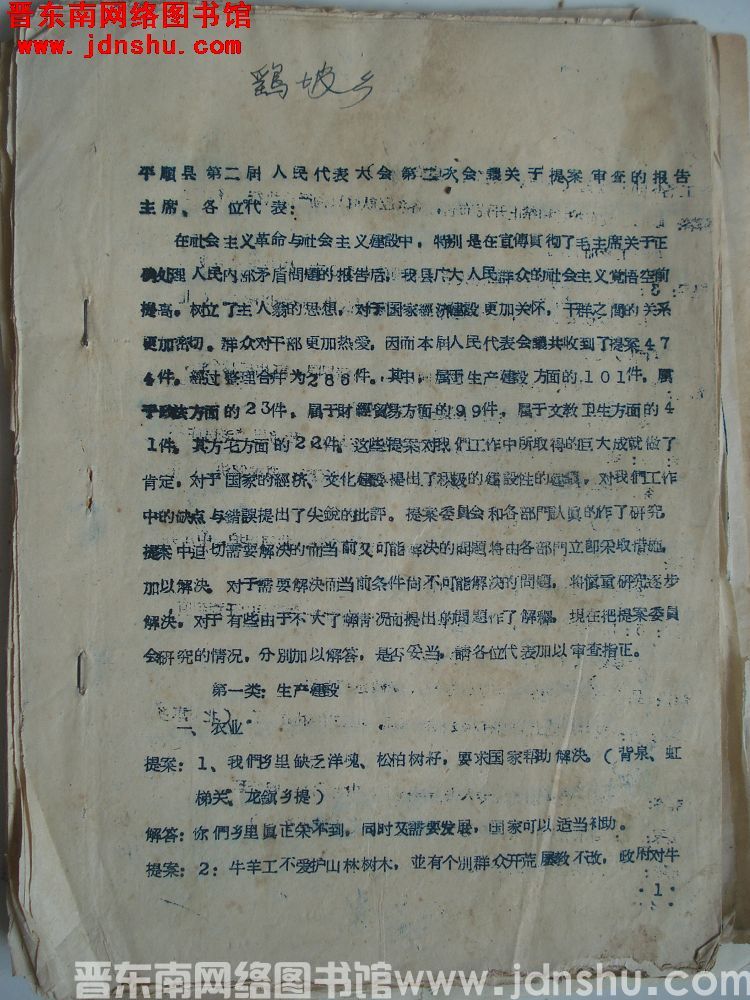 晋东南网络图书馆
www.jdnshu.com
鸡坡乡
平順县第二届人民代表大会第二次会議关于提案审查的报告
主席、各位代表：
在社会主义革命与社会主义建設中，特别是在宣傳貫彻了毛主席关于正
确处理人民内部矛盾問題的报告后，我县广大人民群众的社会主义覚悟空前
提高。树立了主人翁的思想，对于国家經济建設更加关怀，干群之間的关系
更加密切。群众对干部更加热爱，因而本届人民代表会議共收到了提案47
4件。經过整理合并为286件。其中，属于生产建設方面的101件。属
于政法方面的23件。属于財經貿易方面的99件，属于文教卫生方面的4
1件。其方宅方面的22件。这些提案对我們工作中所取得的巨大成就做了
肯定，对于国家的經济、文化建設提出了积极的建設性的建議，对我們工作
中的缺点与錯誤提出了尖銳的批評。提案委員会和各部門认眞的作了研究
提案中迫切需要解决的而当前又可能解决的問題将由各部門立即采取措施
加以解决。对于需要解决而当前条件尚不可能解决的問題，将慎重研究逐步
解决。对于有些由于不大了解情况而提出的問題作了解釋。現在把提案委員
会研究的情况，分别加以解答，是否妥当，請各位代表加以审查指正。
第一类：生产建設
一、农业
提案：1、我們乡里缺乏洋槐、松柏树籽，要求国家帮助解决。（背泉、虹
梯关、龙鎮乡提）
解答：你們乡里眞正采不到，同时又需要发展，国家可以适当补助。
提案：2：牛羊工不爱护山林树木，並有个别群众开荒屡教不改，政府对牛
·1·
晋东南网络图书馆 www.jdnshu.com